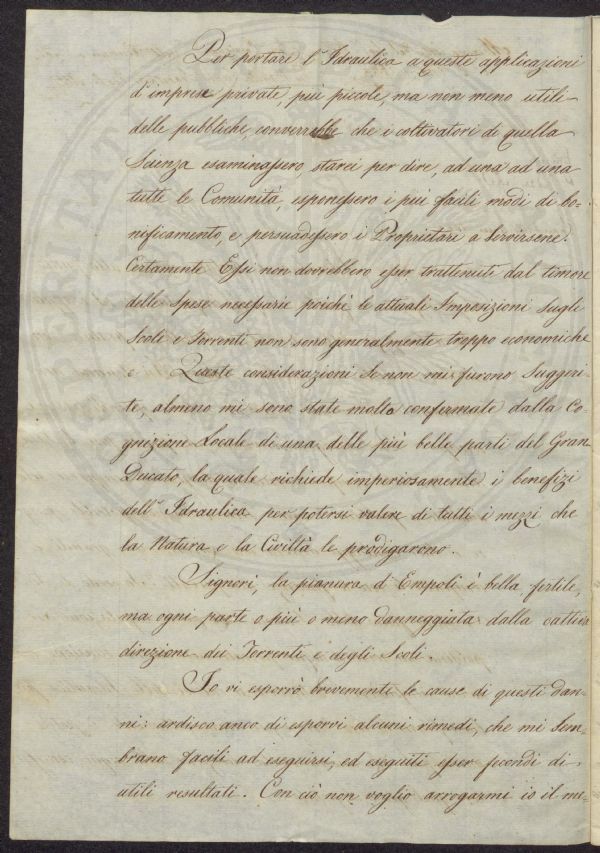 Per portare l'Idraulica a queste applicazioni
d'imprese private, più piccole, ma non meno utili
delle pubbliche, converrebbe che i coltivatori di quella
Scienza esaminassero, starei per dire, ad una ad una
tutte le Comunità, esponessero i più facili modi di bo-
nificamento, e persuadessero i Proprietari a Servirsene.
Certamente Essi non dovrebbero esser trattenuti dal timore
delle Spese necessarie poichè le attuali Imposizioni Sugli
Scoli e Torrenti non sono generalmente troppo economiche
Queste considerazioni Se non mi furono Suggeri-
te, almeno mi sono state molto confermate dalla Co-
gnizione Locale di una delle più belle parti del Gran
Ducato, la quale richiede imperiosamente i benefizi
dell'Idraulica per potersi valere di tutti i mezzi che
la Natura e la Civiltà le prodigarono.
Signori, la pianura d'Empoli è bella fertile,
ma ogni parte o più o meno danneggiata dalla cattiva
direzione dei Torrenti e degli Scoli.
Io vi esporrò brevemente le cause di questi dan-
ni: ardisco anco di esporvi alcuni rimedi, che mi Sem-
brano facili ad eseguirsi, ed eseguiti esser fecondi di
utili resultati. Con ciò non voglio arrogarmi io il me-